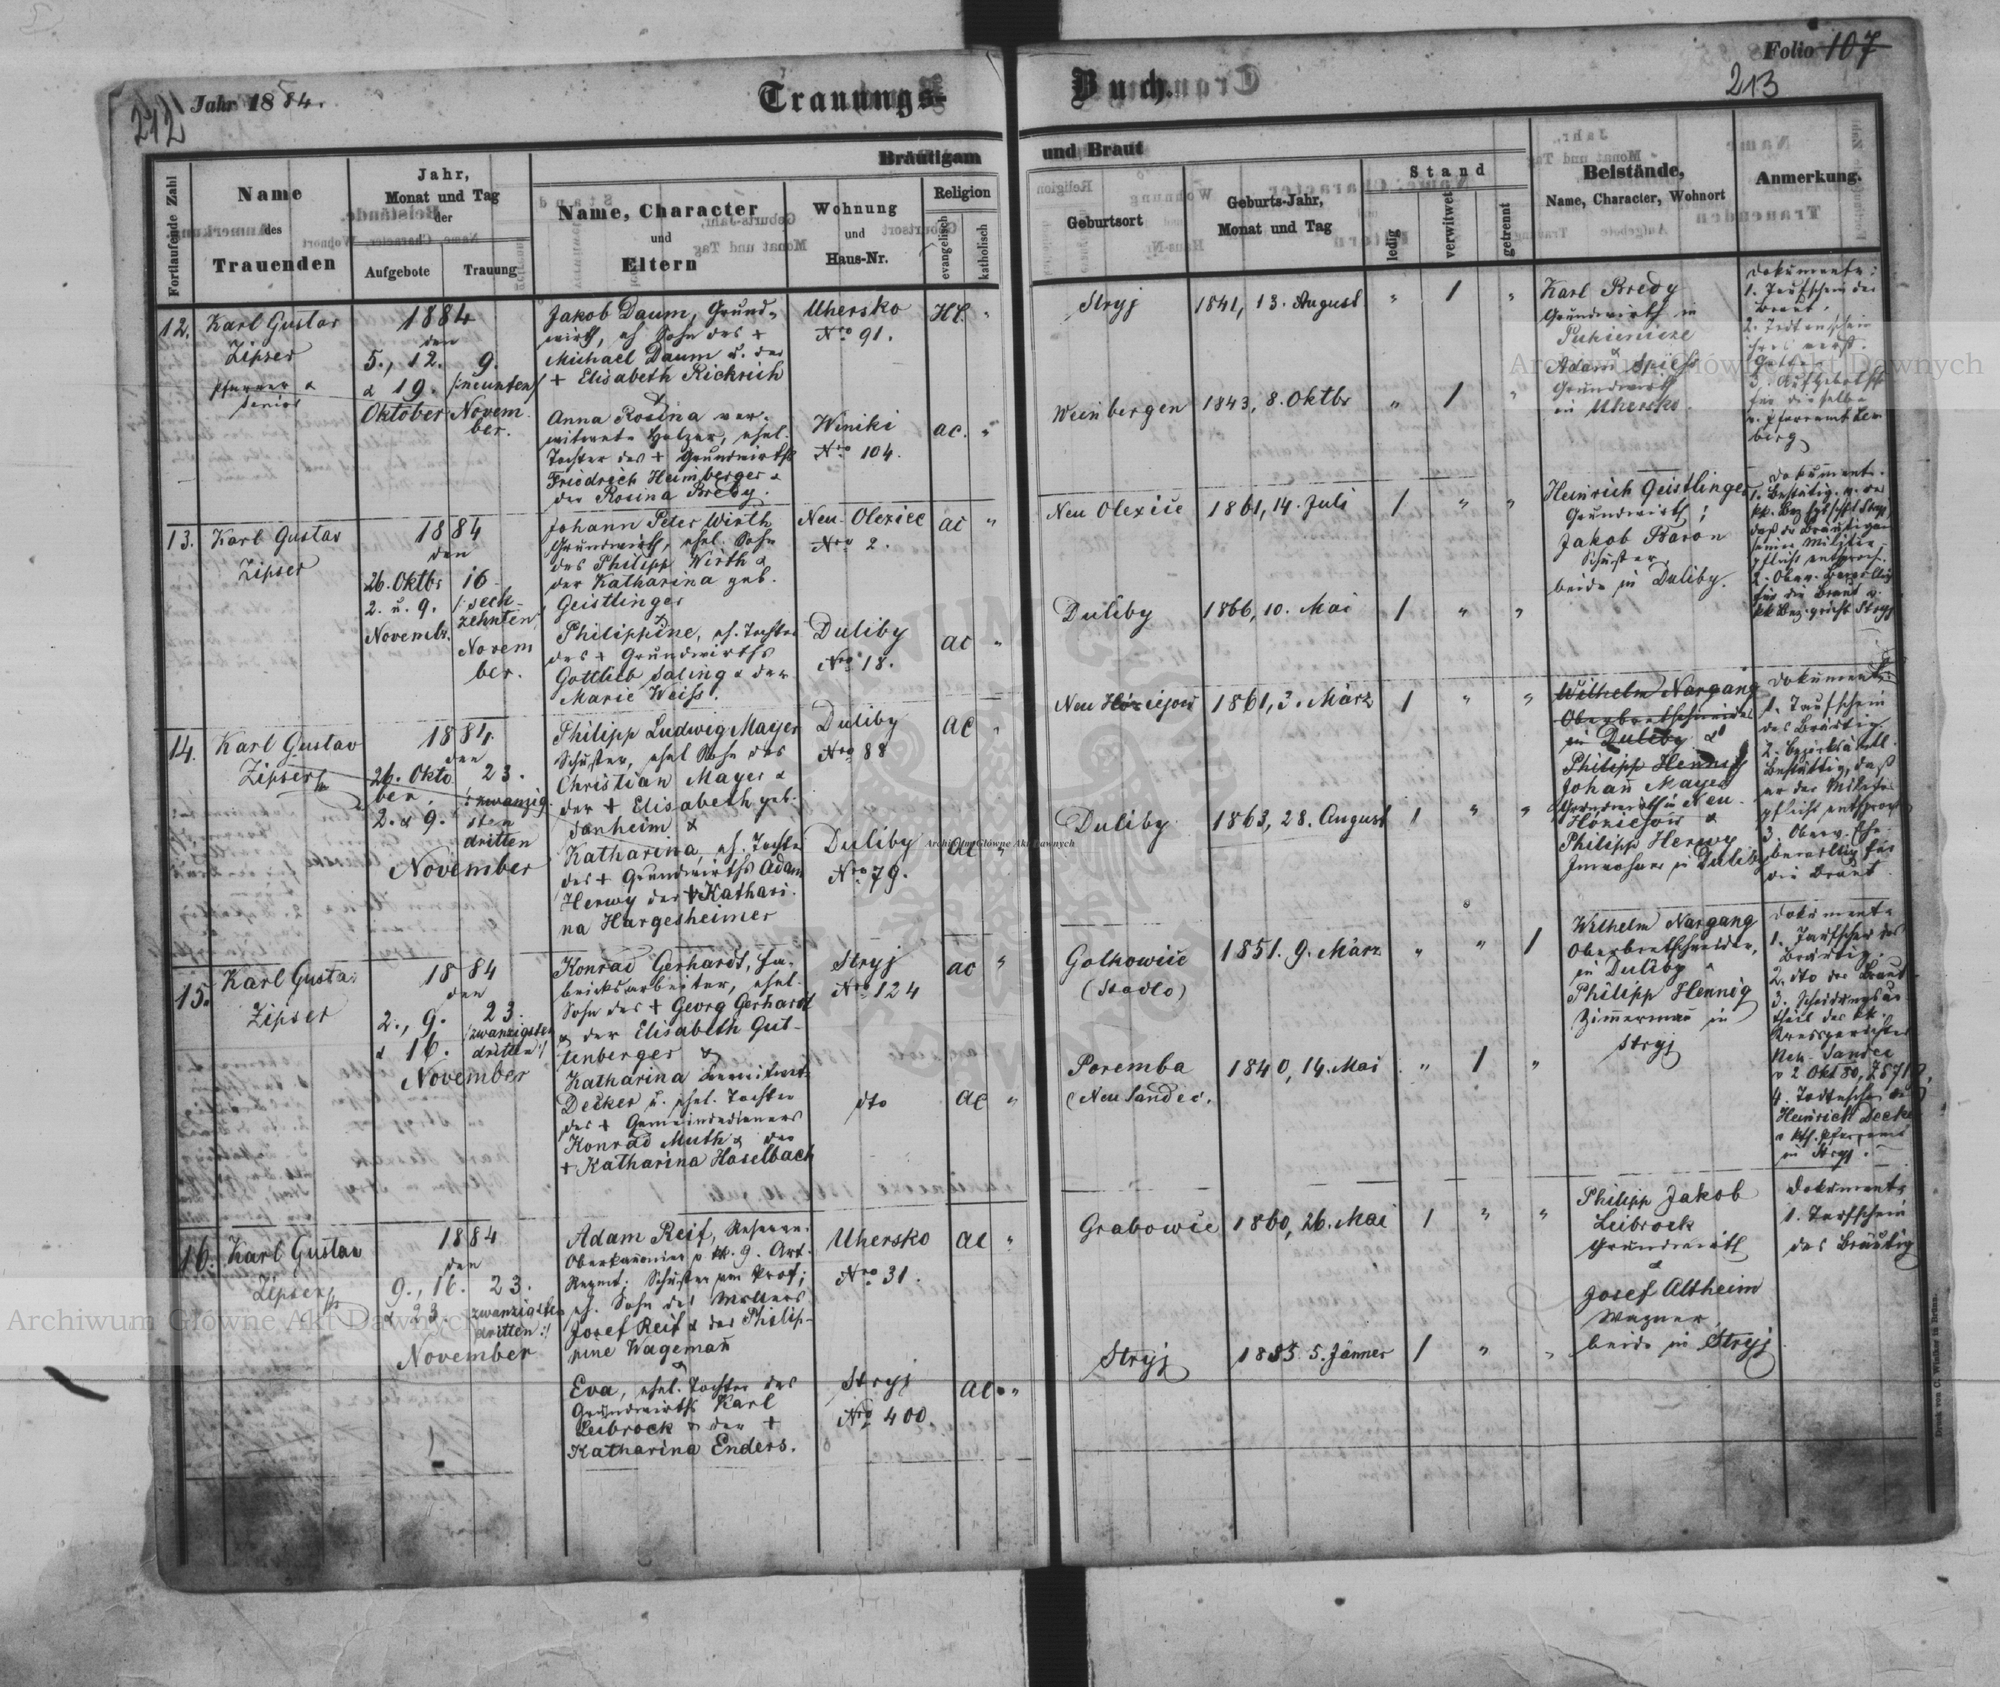 212
Jahr 1884.
Trauungs-
Buch.
Folio 107
213
Fortlaufende Zahl
Name
des
Trauenden
Jahr,
Monat und Tag
der
Aufgebote
Trauung
Bräutigam
und Braut
Name, Character
und
Eltern
Wohnung
und
Haus-Nr.
Religion
evangelisch
katholisch
Geburtsort
Geburts-Jahr,
Monat und Tag
Stand
ledig
verwitwet
getrennt
Beistände,
Name, Character, Wohnort
Anmerkung.
12.
Karl Gustav
Zipser
Pfarrer &
Senior
1884
den
5., 12.
& 19.
Oktober
9.
/:neunten/
Novem
ber.
Jakob Daum, Grund-
wirth, eh Sohn des +
Michael Daum u. der
+ Elisabeth Rickrich
&
Anna Rosina ver-
witwete Holzer, ehel.
Tochter des + Grundwirths
Friedrich Heimberger &
der Rosina Bredy.
Uhersko
Nro 91.
HC.
"
Winiki
Nro 104.
ac.
"
Stryj
1841, 13. August
"
1
"
Weinbergen
1843, 8. Oktbr
"
1
"
Karl Bredy
Grundwirth in
&
Adam Spiess
Grundwirth
in Uhersko.
Dokumente:
1. Taufschein der
Braut.
2. Todtenschein
ihres verst.
Gatten
für dieselbe
v. Pfarramt Lem
berg
13.
Karl Gustav
Zipser
1884
den
26. Oktbr
2. u. 9.
Novembr.
16
/:sech-
zehnten/
Novem
ber.
Johann Peter Wirth
Grundwirth, ehel. Sohn
des Philipp Wirth &
der Katharina geb.
Geistlinger
&
Philippine, eh. Tochter
des + Grundwirths
Gottlieb Saling & der
Marie Weiss.
Neu-Olexice
Nro 2.
ac
"
Duliby
Nro 18.
ac
"
Neu Olexice
1861, 14. Juli
1
"
"
Duliby
1866, 10. Mai
1
"
"
Heinrich Geistlinger
Grundwirth;
Jakob Baron
Schuster
beide in Duliby.
Dokumente.
1. Bestätig. v. der
kk. Bez. Stryj,
daß der Bräutigam
seiner Militär-
pflicht entsproch.
für die Braut v.
kk Bez. gricht Stryj
14.
Karl Gustav
Zipser
1884
den
26. Okto
ber.
2. & 9.
23.
/:zwanzig
sten
dritten
November
Philipp Ludwig Mayer
Schuster, ehel Sohn des
Christian Mayer &
der + Elisabeth geb.
Danheim &
Katharina, eh. Tochter
des + Grundwirths Adam
Herwy der + Kathari-
na Hargesheimer
Duliby
Nro 88
ac
"
Duliby
Nro 79.
ac
"
1861, 3. März
1
"
"
Duliby
1863, 28. August
1
"
"
Wilhelm Nargang
Oberbretschneider
in Duliby &
Philipp Hennig
Johañ Mayer
Grundwirth in Neu-
&
Philipp Herwy
Inwohner in Duliby
Dokumente
1. Taufschein
des Bräutig.
2. Bezirksämtl.
Bestättig, daß
er der Militär
pflicht entsproch
3. Oberv. Ehe-
bewillig für
die Braut.
15.
Karl Gustav
Zipser
1884
den
2., 9.
& 16.
23.
/:zwanzigsten
dritten:/
November
Konrad Gerhardt, Fa-
briksarbeiter, ehel.
Sohn des + Georg Gerhardt
& der Elisabeth Gut-
tenberger &
Katharina verwitwete
Decker u. ehel. Tochter
des + Gemeindedieners
Konrad Muth & der
+ Katharina Haselbach
Stryj
Nro 124
ac
"
dto
ac
"
Golkowice
(Stadlo)
1851. 9. März
"
"
1
Poremba
(Neu Sandec.
1840, 14. Mai
"
1
"
Wilhelm Nargang
Oberbretschneider,
in Duliby &
Philipp Hennig
Zimmermañ in
Stryj
Dokumente
1. Taufschein des
Bräutig.
2. dto der Braut
3. Scheidungsur-
theil des kk.
Kreisgerichtes
Neu-Sandec
4. Todtenschein des
Heinrich Decker
in Stryj.
16.
Karl Gustav
Zipser
1884
den
9., 16.
& 23.
23.
/:zwanzigsten
dritten:/
November
Adam Reif, Reserve-
Oberkanonier v. 9. Art.
Regmt. Schuster von Prof;
eh. Sohn des Müllers
Josef Reif & der Philip-
pine Wagemañ
&
Eva, ehel. Tochter des
Grundwirths Karl
Leibrock & der +
Katharina Enders.
Uhersko
Nro 31.
ac
"
Stryj
Nro 400.
ac
"
Grabowce
1860, 26. Mai
1
"
"
Stryj
5. Jänner
1
"
"
Philipp Jakob
Leibrock
Grundwirth
&
Josef Altheim
Wagner,
beide in Stryj
Dokumente
1. Taufschein
des Bräutig
Archiwum Główne Akt Dawnych
Archiwum Główne Akt Dawnych
Archiwum Główne Akt Dawnych